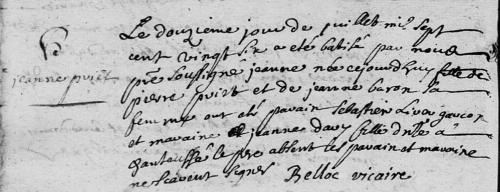 B
jeanne poirt
Le douzieme jour de juillet mil sept
cent vingt six a eté batisé par nous
ptre soussigné jeanne née cejourdhuy fille de
pierre poirt et de jeanne baron sa
femme ont eté parain sebastien
et maraine jeanne davy fille
le pere absent les parain et maraine
ne scavent signer Belloc vicaire